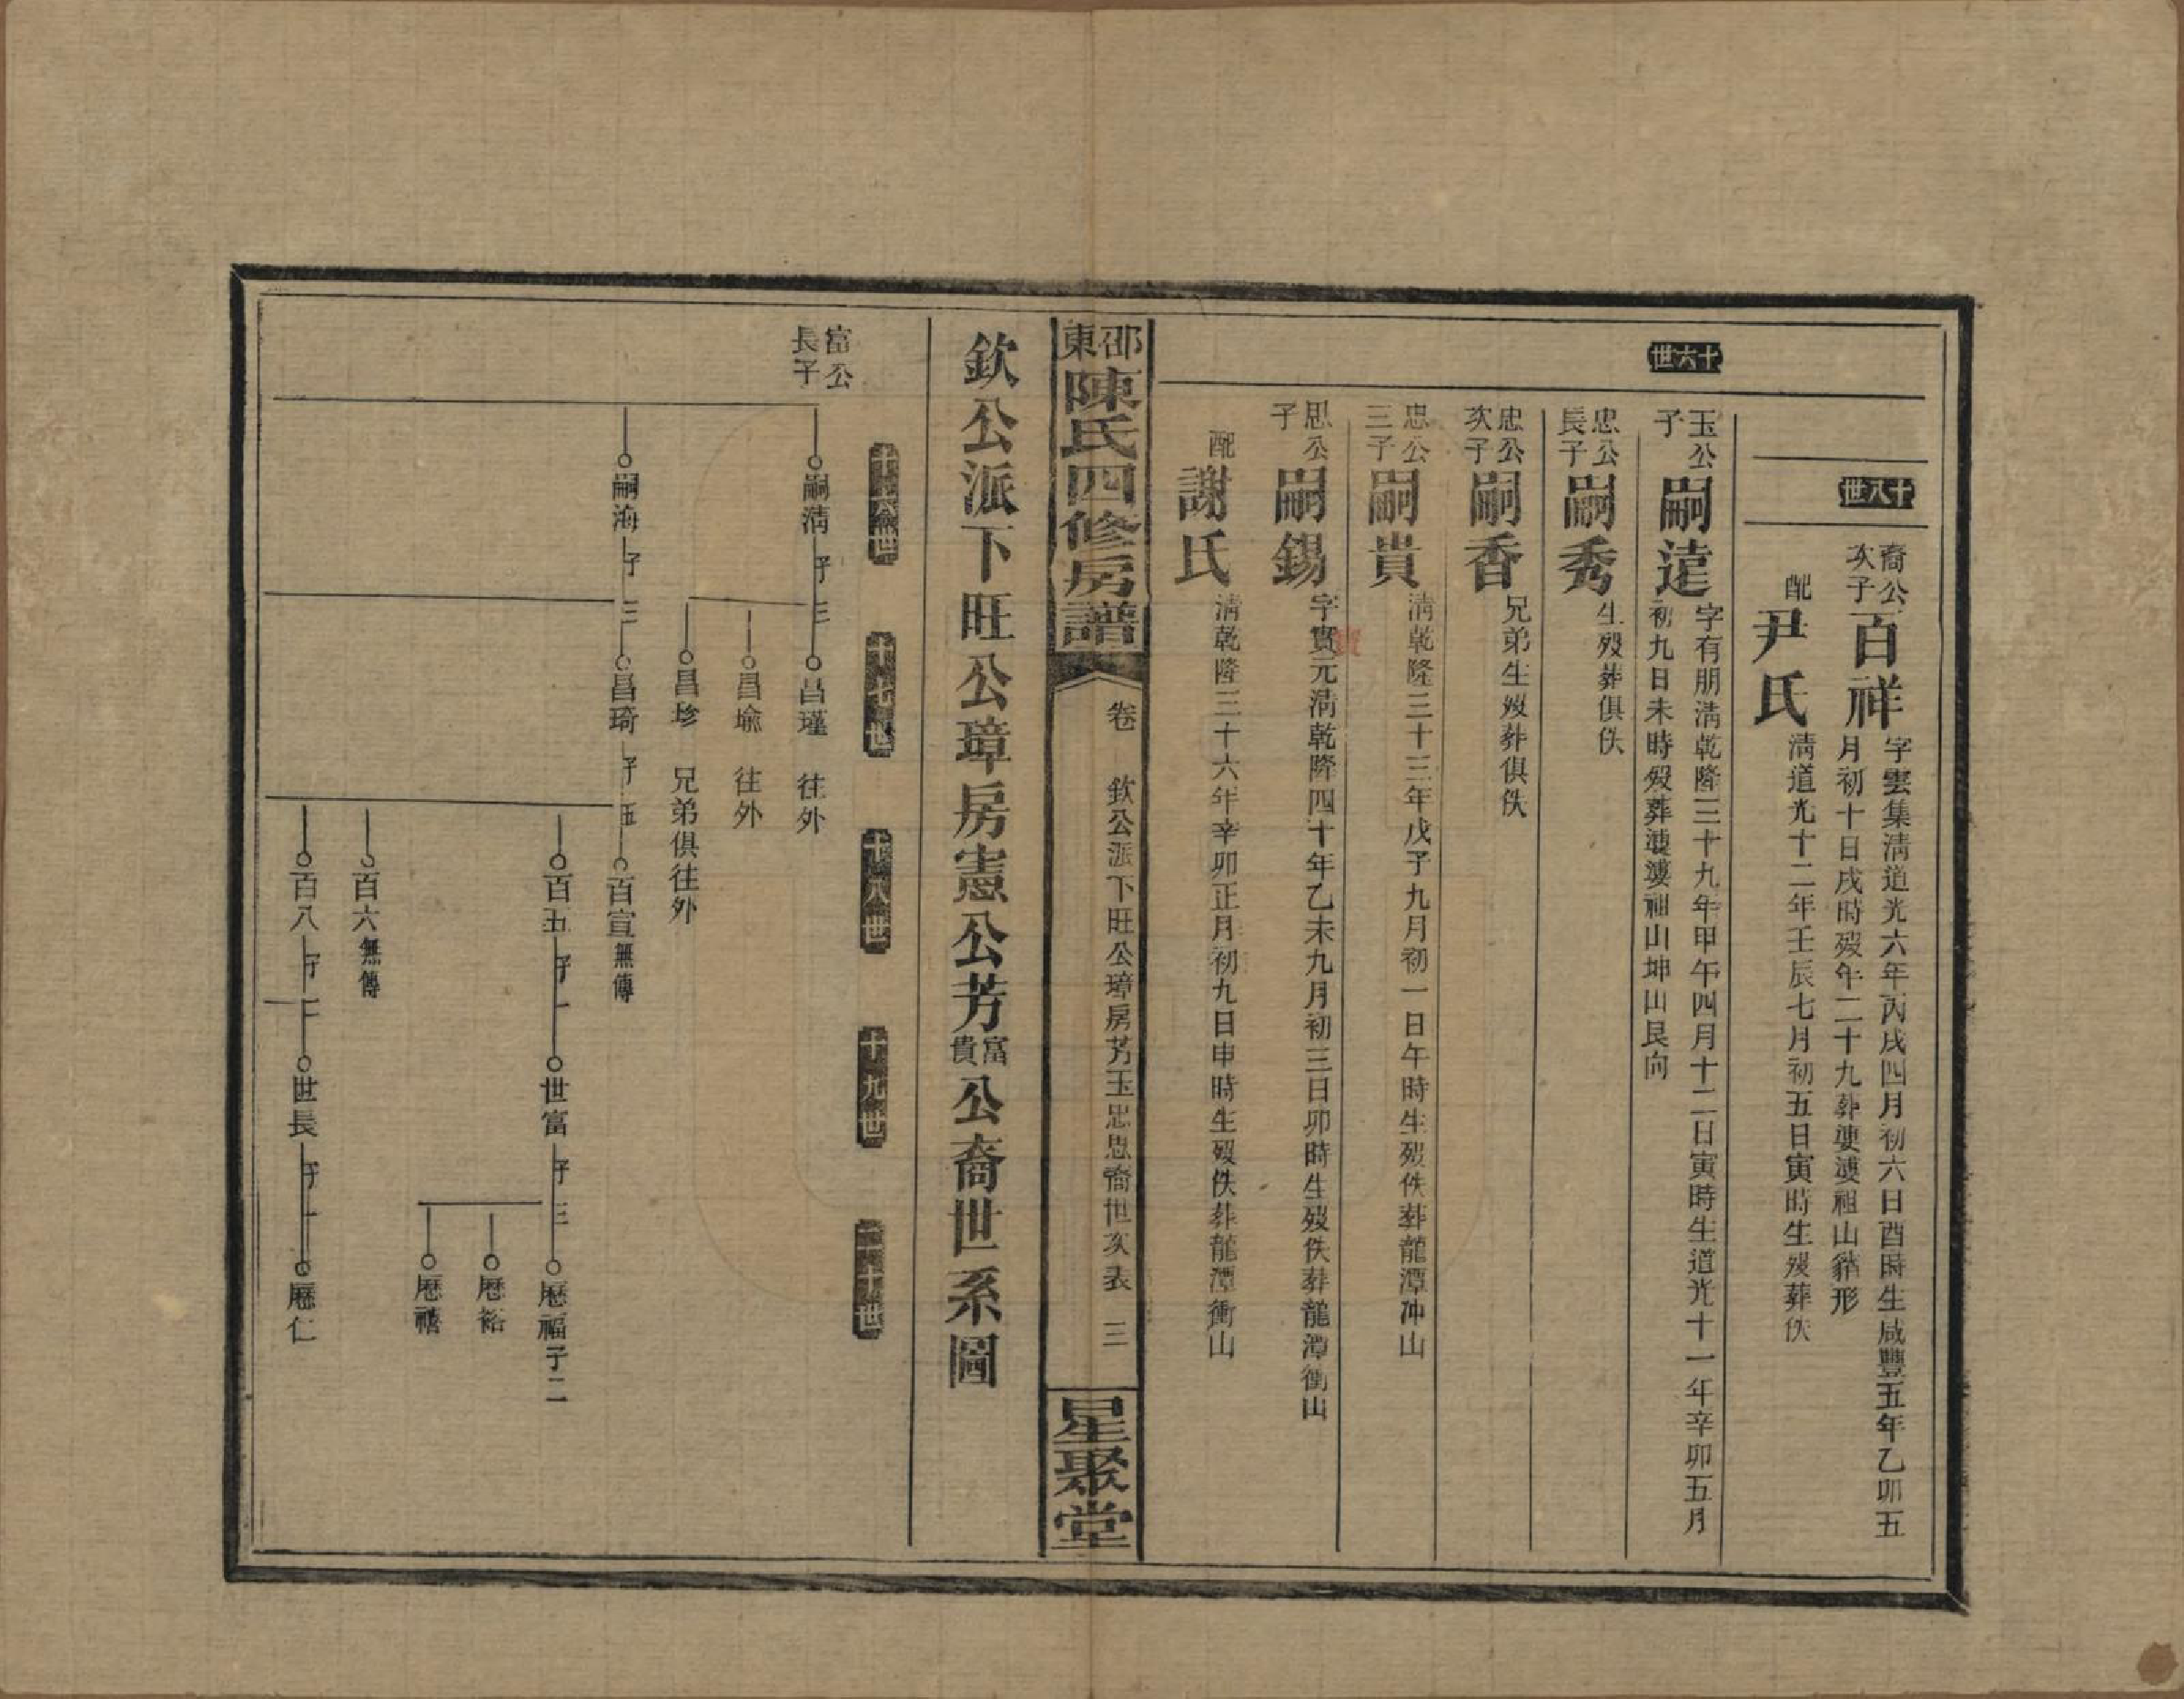 十八世
裔公次子
百祥
字雲集淸道光六年丙戌四月初六日酉時生咸豐五年乙卯五
月初十日戌時歿年二十九葬婆婆祖山貓形
配
尹氏
淸道光十二年壬辰七月初五日寅時生歿葬佚
十六世
玉公子
嗣逵
字有朋淸乾隆三十九年甲午四月十二日寅時生道光十一年辛卯五月
初九日未時歿葬婆婆祖山坤山艮向
忠公長子
嗣秀
生歿葬俱佚
忠公次子
嗣香
兄弟生歿葬俱佚
忠公三子
嗣貴
淸乾隆三十三年戊子九月初一日午時生歿佚葬龍潭冲山
思公子
嗣錫
字實元淸乾隆四十年乙未九月初三日卯時生歿佚葬龍潭衝山
配
謝氏
淸乾隆三十六年辛卯正月初九日申時生歿佚葬龍潭衝山
邵東
陳氏四修房譜
卷
欽公派下旺公璋房芳玉忠思裔世次表
三
星聚堂
欽公派下旺公璋房憲公芳富貴公裔世系圖
十六世
十七世
十八世
十九世
二十世
富公長子
嗣淸 子三
昌瑾 往外
昌瑜 往外
昌珍 兄弟俱往外
嗣海 子三
昌琦 子五
百宣 無傳
百五 子一
世富 子三
歷福 子二
歷裕
歷禧
百六 無傳
百八 子二
世長 子一
歷仁